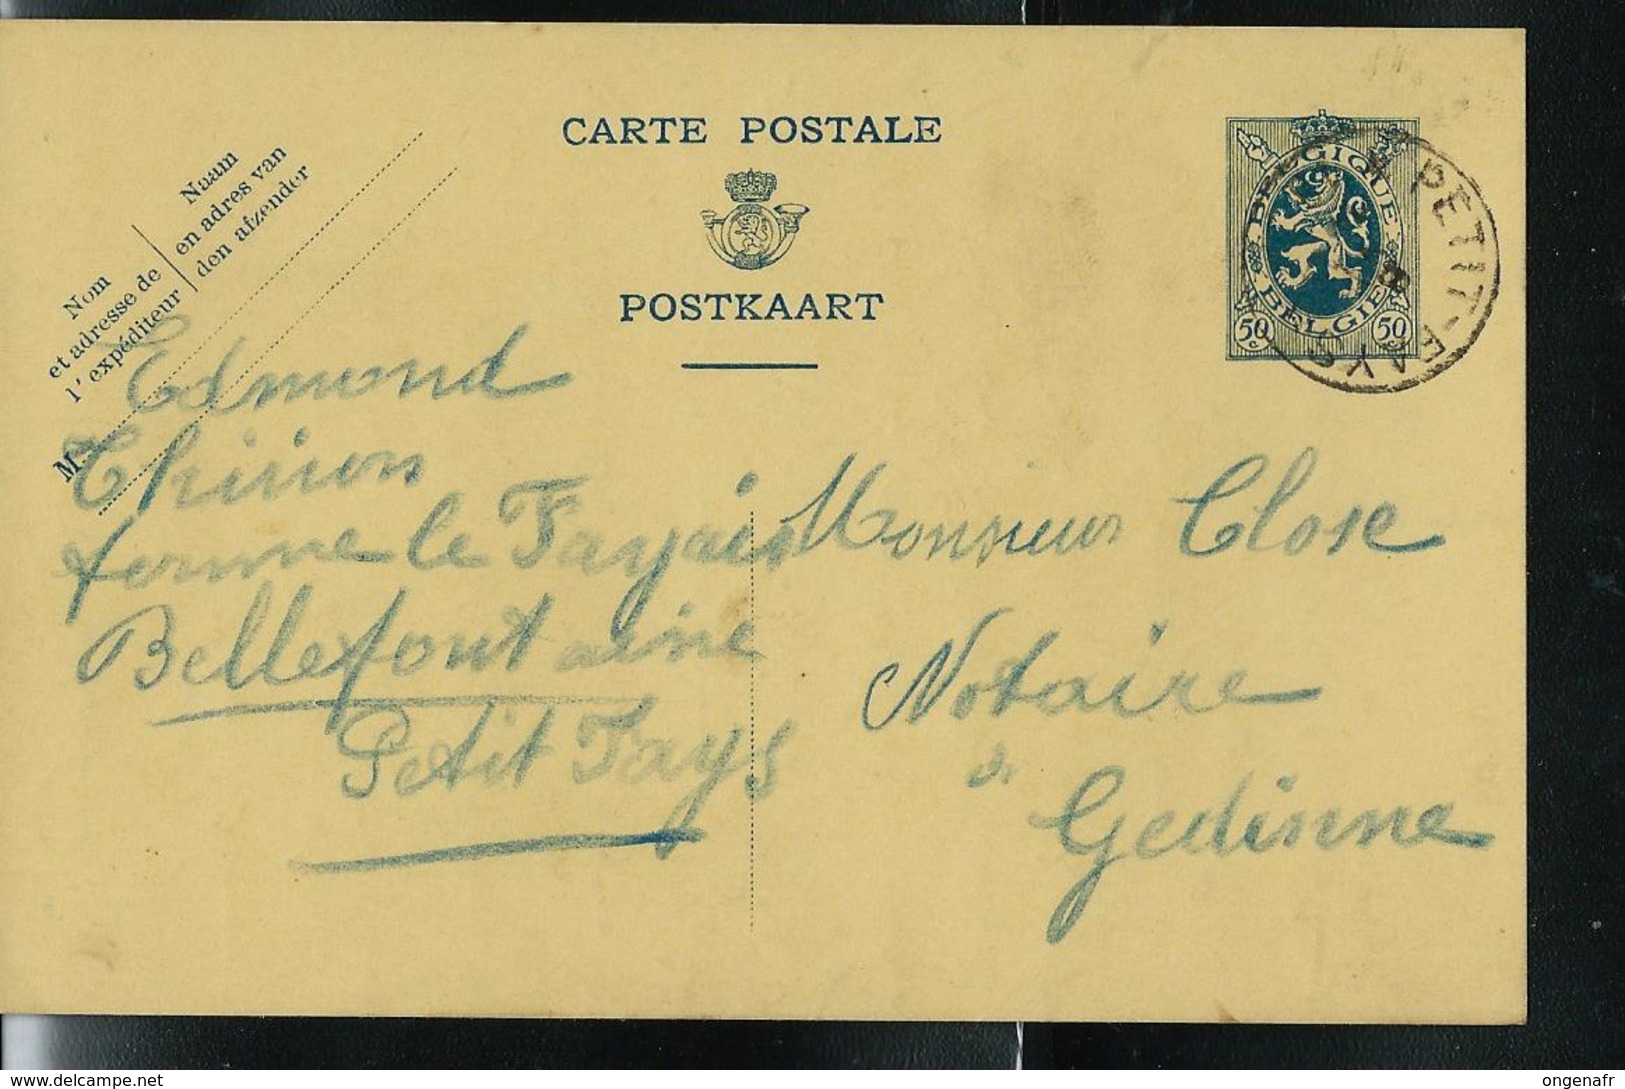 CARTE POSTALE
POSTKAART
Nom
et adresse de
l'expéditeur
Naam
en adres van
den afzender
M
BELGIQUE
BELGIË
50 c
50 c
PETIT-FAYS
Edmond
Thirion
ferme le Fayais
Bellefontaine
Petit Fays
Monsieur Close
Notaire
à
Gedinne
ongenafr